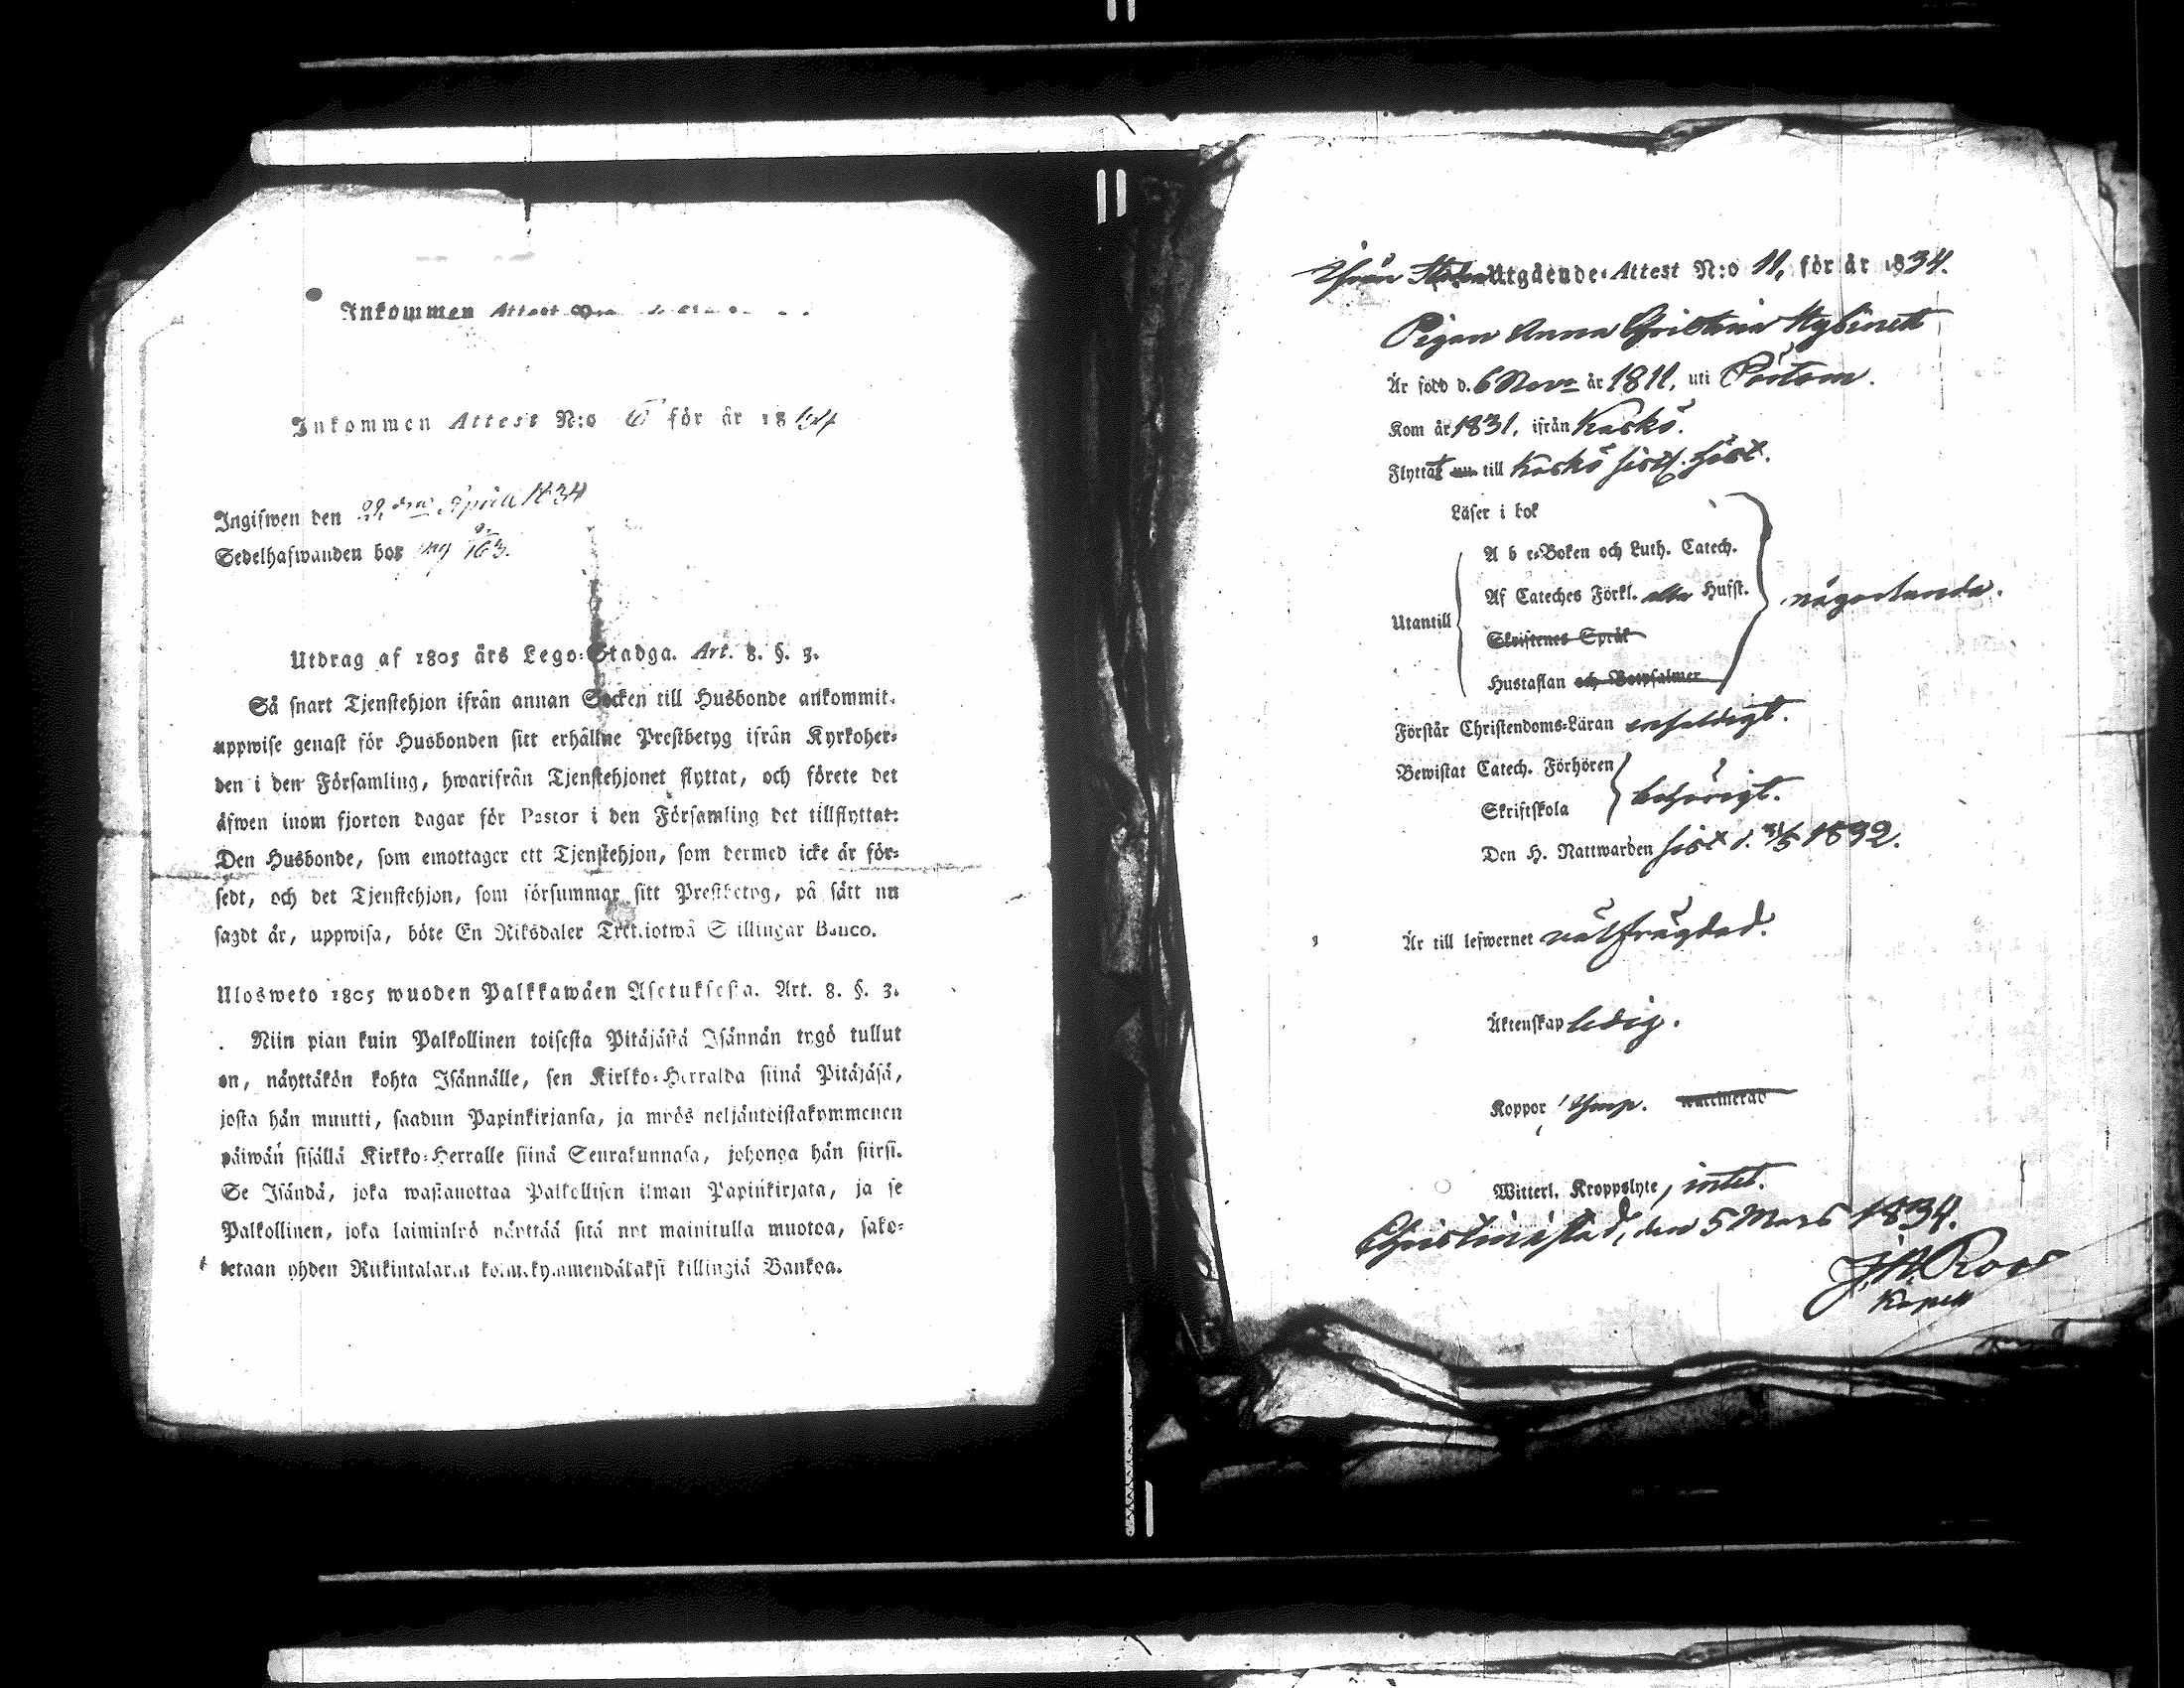 Inkommen Attest
Inkommen Attest N:o 6 för år 1834
Ingifwen den 22 dra April 1834
Sedelhafwanden bor pag 163.
Utdrag af 1805 års Lego-Stadga. Art. 8. §. 3.
Så snart Tjenstehjon ifrån annan Socken till Husbonde ankommit,
uppwise genast för Husbonden sitt erhållne Prestbetyg ifrån Kyrkoher-
den i den Församling, hwarifrån Tjenstehjonet flyttat, och förete det
äfwen inom fjorton dagar för Pastor i den Församling det tillflyttat:
Den Husbonde, som emottager ett Tjenstehjon, som dermed icke är för-
sedt, och det Tjenstehjon, som försummar sitt Prestbetyg, på sätt nu
sagdt är, uppwisa, böte En Riksdaler Trettiotwå Skillingar Banco.
Ulosweto 1805 wuoden Palkkawäen Asetuksesta. Art. 8. §. 3.
Niin pian kuin Palkollinen toisesta Pitäjästä Isännän tygö tullut
on, näyttäkön kohta Isännälle, sen Kirkko-Herralda siinä Pitäjäsä,
josta hän muutti, saadun Papinkirjansa, ja myös neljäntoistakymmenen
päiwän sisällä Kirkko-Herralle siinä Seurakunnasa, johonga hän siirsi.
Se Isändä, joka wastanottaa Palkollisen ilman Papinkirjata, ja se
Palkollinen, joka laiminlyö näyttää sitä nyt mainitulla muotoa, sako-
tetaan yhden Riikintalarin kolmekymmendäkaksi killingiä Bankoa.
Utgående Attest N:o 11, för år 1834.
Pigan Anna Christina Nybinett
Är född d. 6 Nov. år 1811, uti Pörtom.
Kom år 1831, ifrån Kaskö.
Flyttat nu till Kaskö sistl. höst.
Läser i bok
A b c-Boken och Luth. Catech.
Af Cateches Förkl. alla Hufst.
Utantill
någorlunda.
Skriftenes Språk
Hustaflan och Botpsalmer
Förstår Christendoms-Läran enfaldigt.
Bewistat Catech. Förhören
behörigt.
Skriftskola
Den H. Nattwarden sist d. 1832.
Är till lefwernet välfrägdad.
Äktenskap ledig.
Koppor Ymp. vaccinerad
Witterl. Kroppslyte, intet.
Christinæstad, den 5 Mars 1834.
J. A. Roos
Kapell